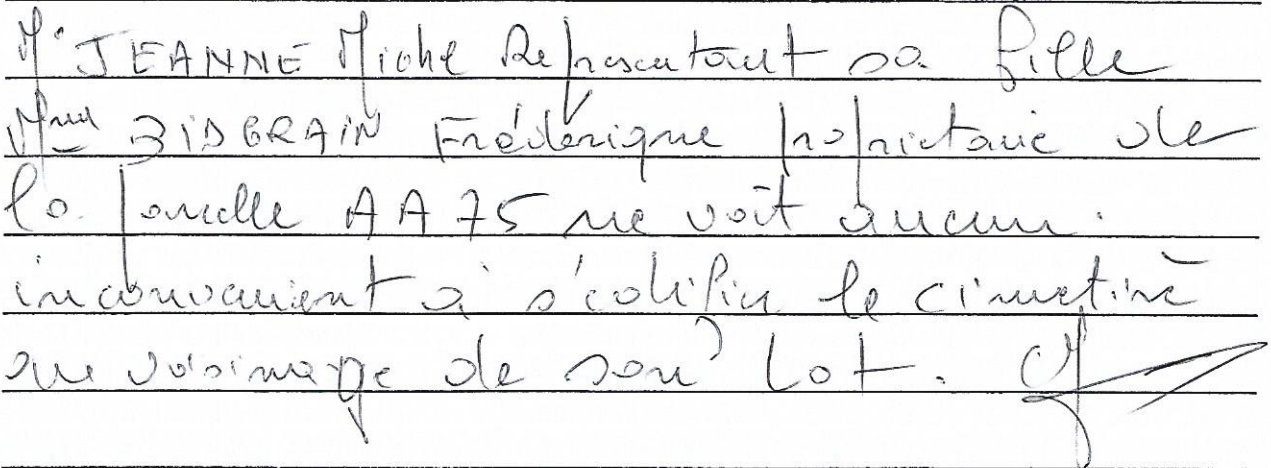 Mr JEANNE Michel Représentant sa fille
Mme BIDGRAIN Frédérique propriétaire de
la parcelle AA75 ne voit aucun
inconvenient à s'édifier le cimetière
au voisinage de son lot.